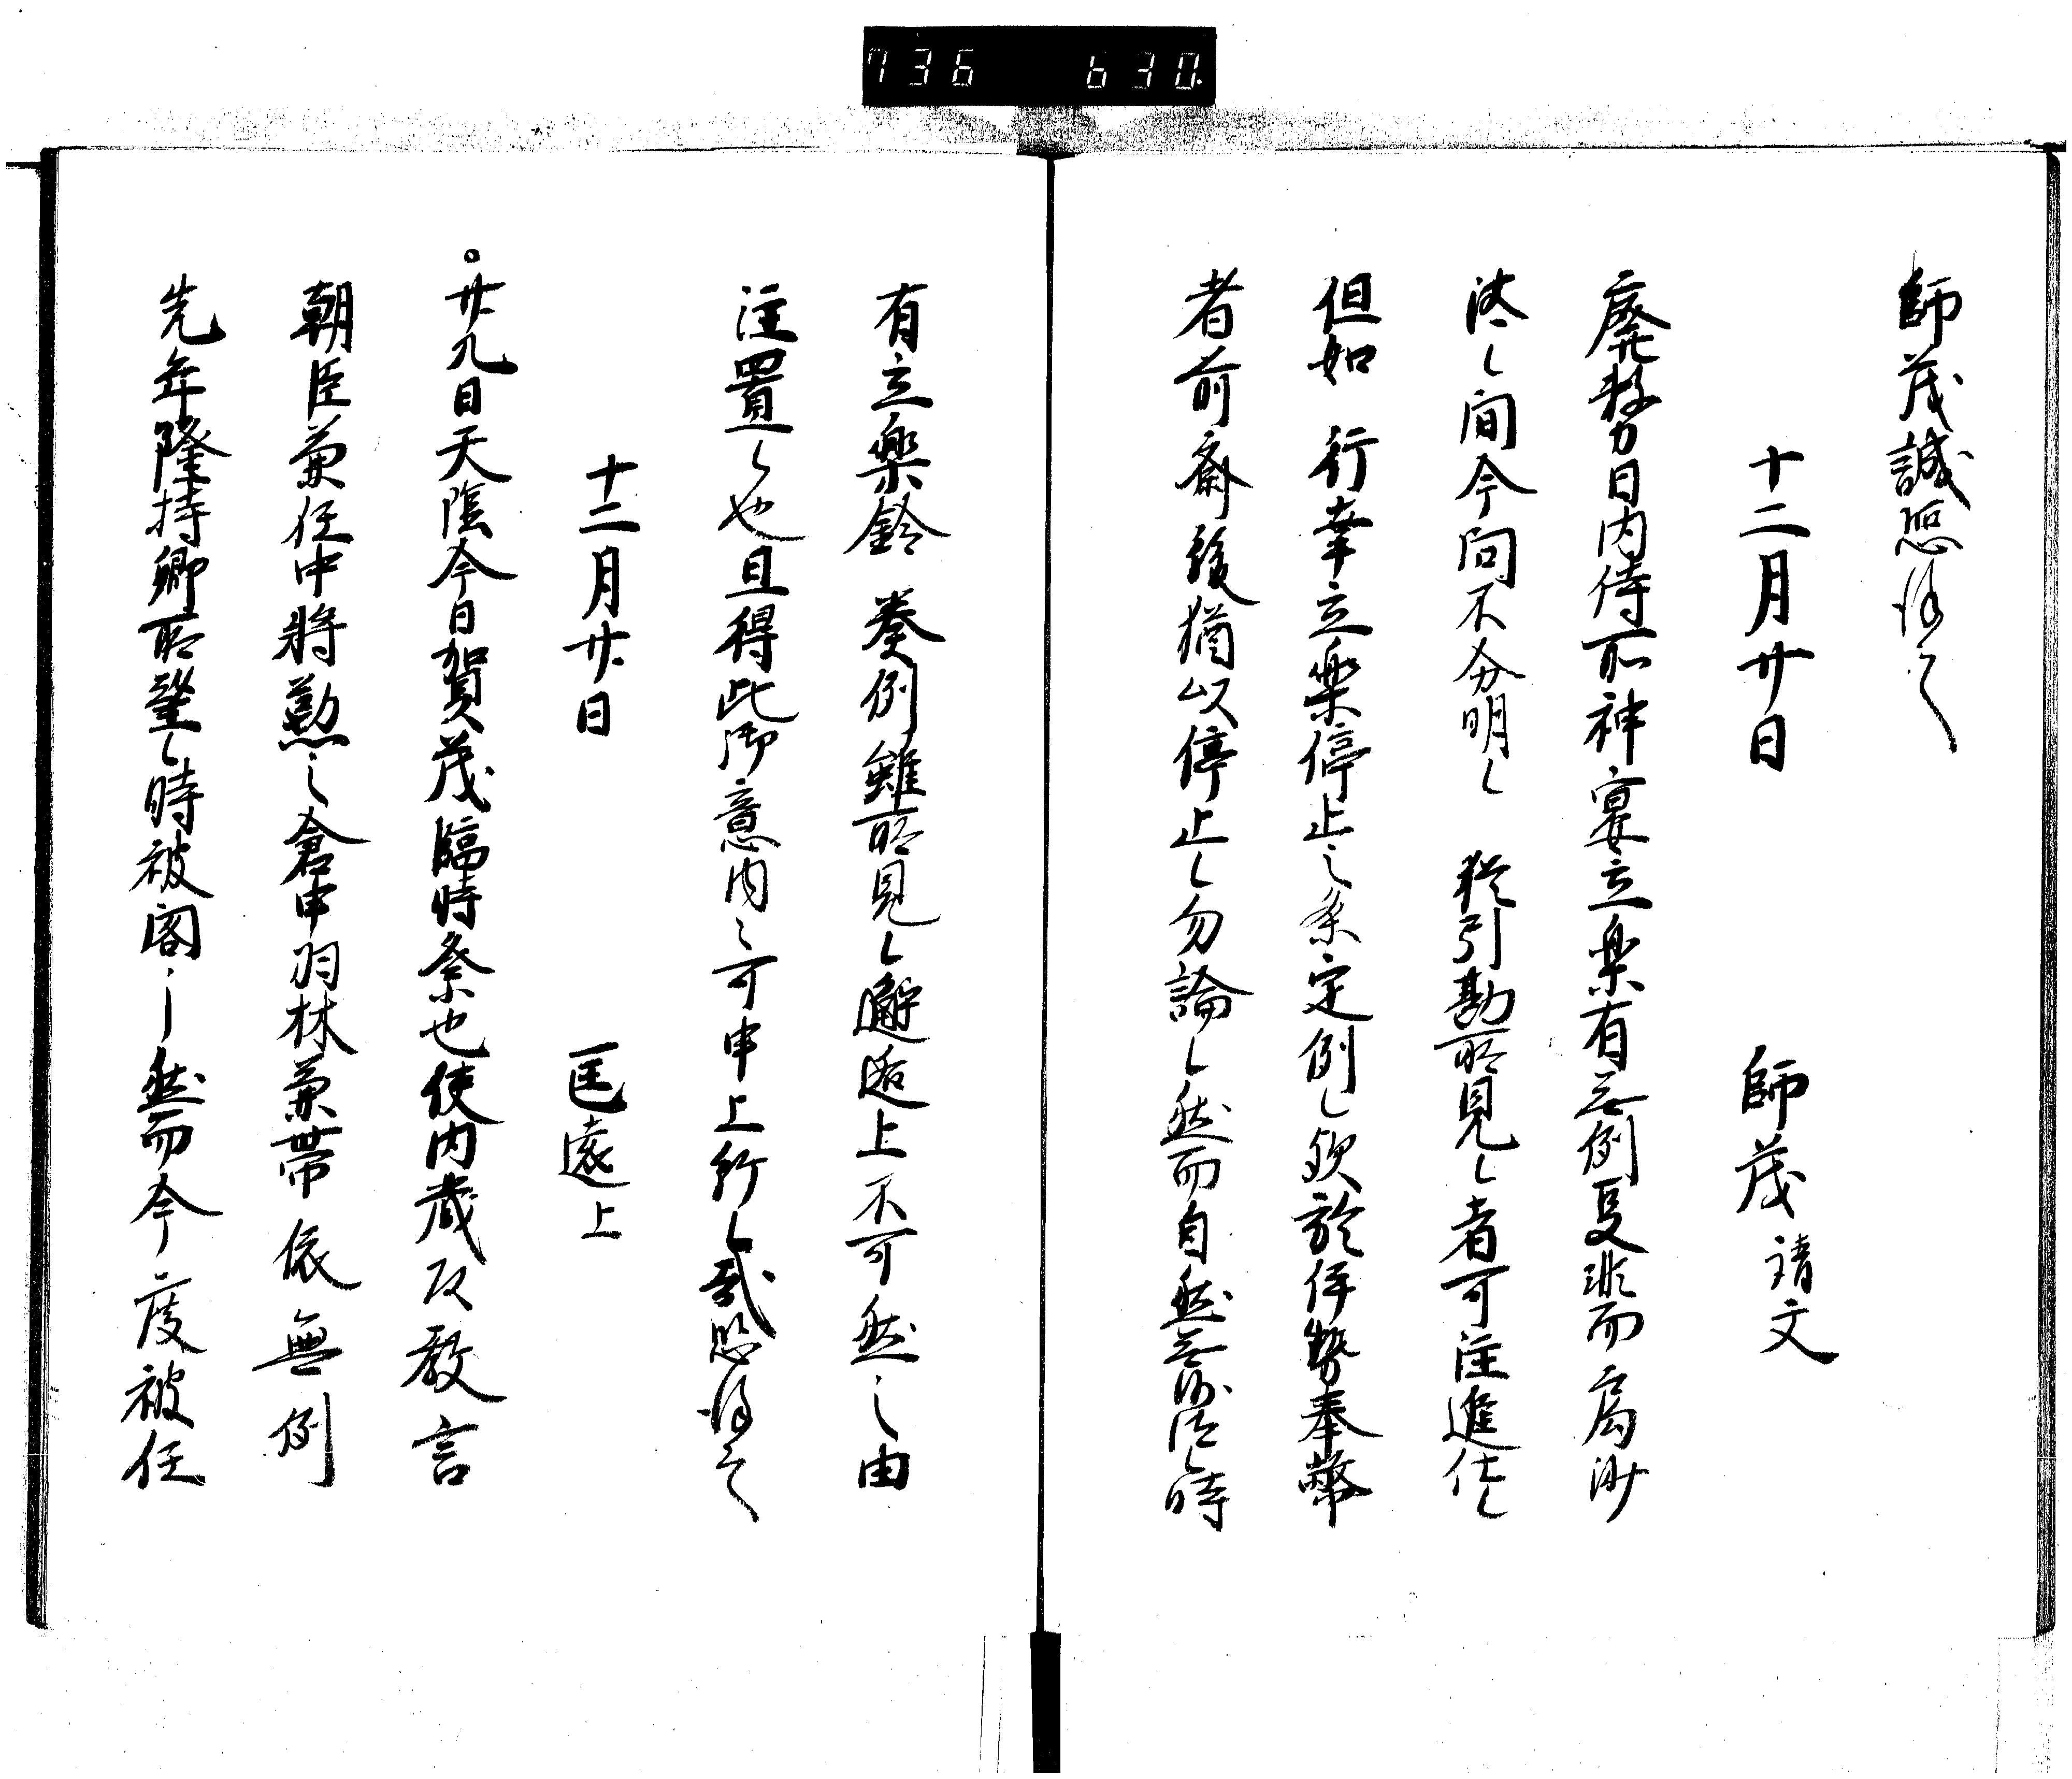 736 630
師茂誠恐謹言
十二月廿日 師茂請文
廃務日内侍所神宴立楽有無例事非而属沙
汰之間今問不分明之 猶引勘所見之者可注進仕之
但如 行幸立楽停止之条定例之欤於伊勢奉幣
者前斎後猶以停止之勿論之然而自然無沙汰之時
有立楽鈴 奏例雖所見之邂逅上不可然之由
注置之也且得此御意内々可申上給之哉恐謹言
十二月廿日 匡遠上
。廿九日天陰今日賀茂臨時祭也使内蔵頭教言
朝臣兼任中将懃之倉申羽林兼帯依無例
先年隆持卿所望之時被閣了然而今度被任